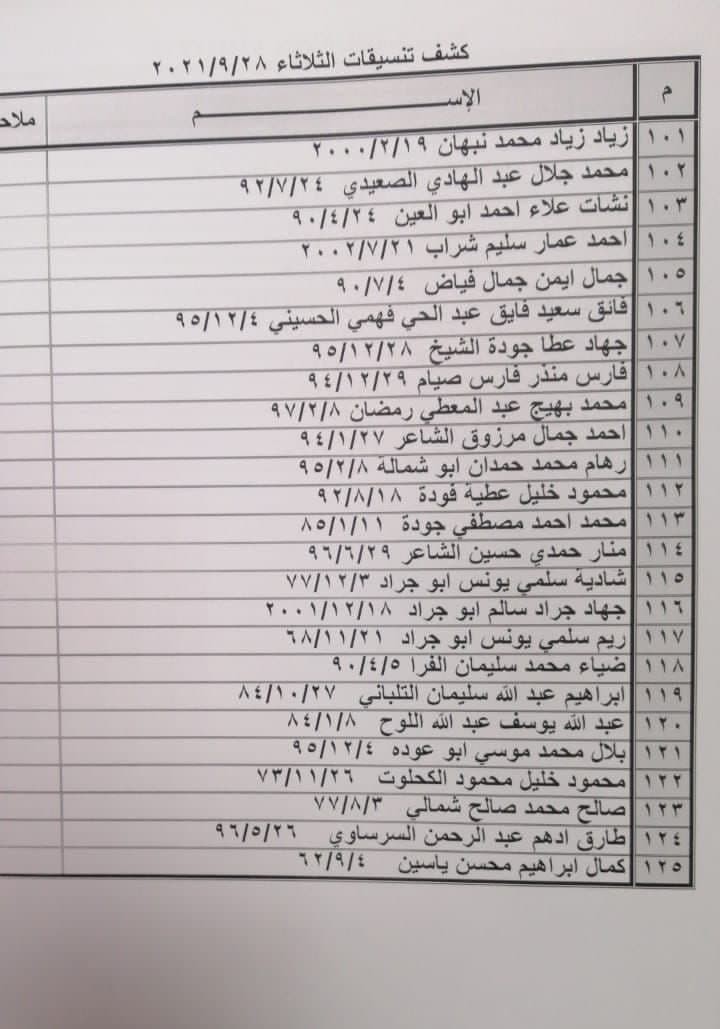 كشف تنسيقات الثلاثاء ٢٠٢١/٩/٢٨
م الإســـــــــــــــــم ملاح
١٠١ زياد زياد محمد نبهان ٢٠٠٠/٢/١٩
١٠٢ محمد جلال عبد الهادي الصعيدي ٩٢/٧/٢٤
١٠٣ نشات علاء احمد ابو العين ٩٠/٤/٢٤
١٠٤ احمد عمار سليم شراب ٢٠٠٢/٧/٢١
١٠٥ جمال ايمن جمال فياض ٩٠/٧/٤
١٠٦ فائق سعيد فايق عبد الحي فهمي الحسيني ٩٥/١٢/٤
١٠٧ جهاد عطا جودة الشيخ ٩٥/١٢/٢٨
١٠٨ فارس منذر فارس صيام ٩٤/١٢/٢٩
١٠٩ محمد بهيج عبد المعطي رمضان ٩٧/٢/٨
١١٠ احمد جمال مرزوق الشاعر ٩٤/١/٢٧
١١١ رهام محمد حمدان ابو شمالة ٩٥/٢/٨
١١٢ محمود خليل عطية فودة ٩٢/٨/١٨
١١٣ محمد احمد مصطفي جودة ٨٥/١/١١
١١٤ منار حمدي حسين الشاعر ٩٦/٦/٢٩
١١٥ شادية سلمي يونس ابو جراد ٧٧/١٢/٣
١١٦ جهاد جراد سالم ابو جراد ٢٠٠١/١٢/١٨
١١٧ ريم سلمي يونس ابو جراد ٦٨/١١/٢١
١١٨ ضياء محمد سليمان الفرا ٩٠/٤/٥
١١٩ ابراهيم عبد الله سليمان التلباني ٨٤/١٠/٢٧
١٢٠ عبد الله يوسف عبد الله اللوح ٨٤/١/٨
١٢١ بلال محمد موسي ابو عوده ٩٥/١٢/٤
١٢٢ محمود خليل محمود الكحلوت ٧٣/١١/٢٦
١٢٣ صالح محمد صالح شمالي ٧٧/٨/٣
١٢٤ طارق ادهم عبد الرحمن السرساوي ٩٦/٥/٢٦
١٢٥ كمال ابراهيم محسن ياسين ٦٢/٩/٤